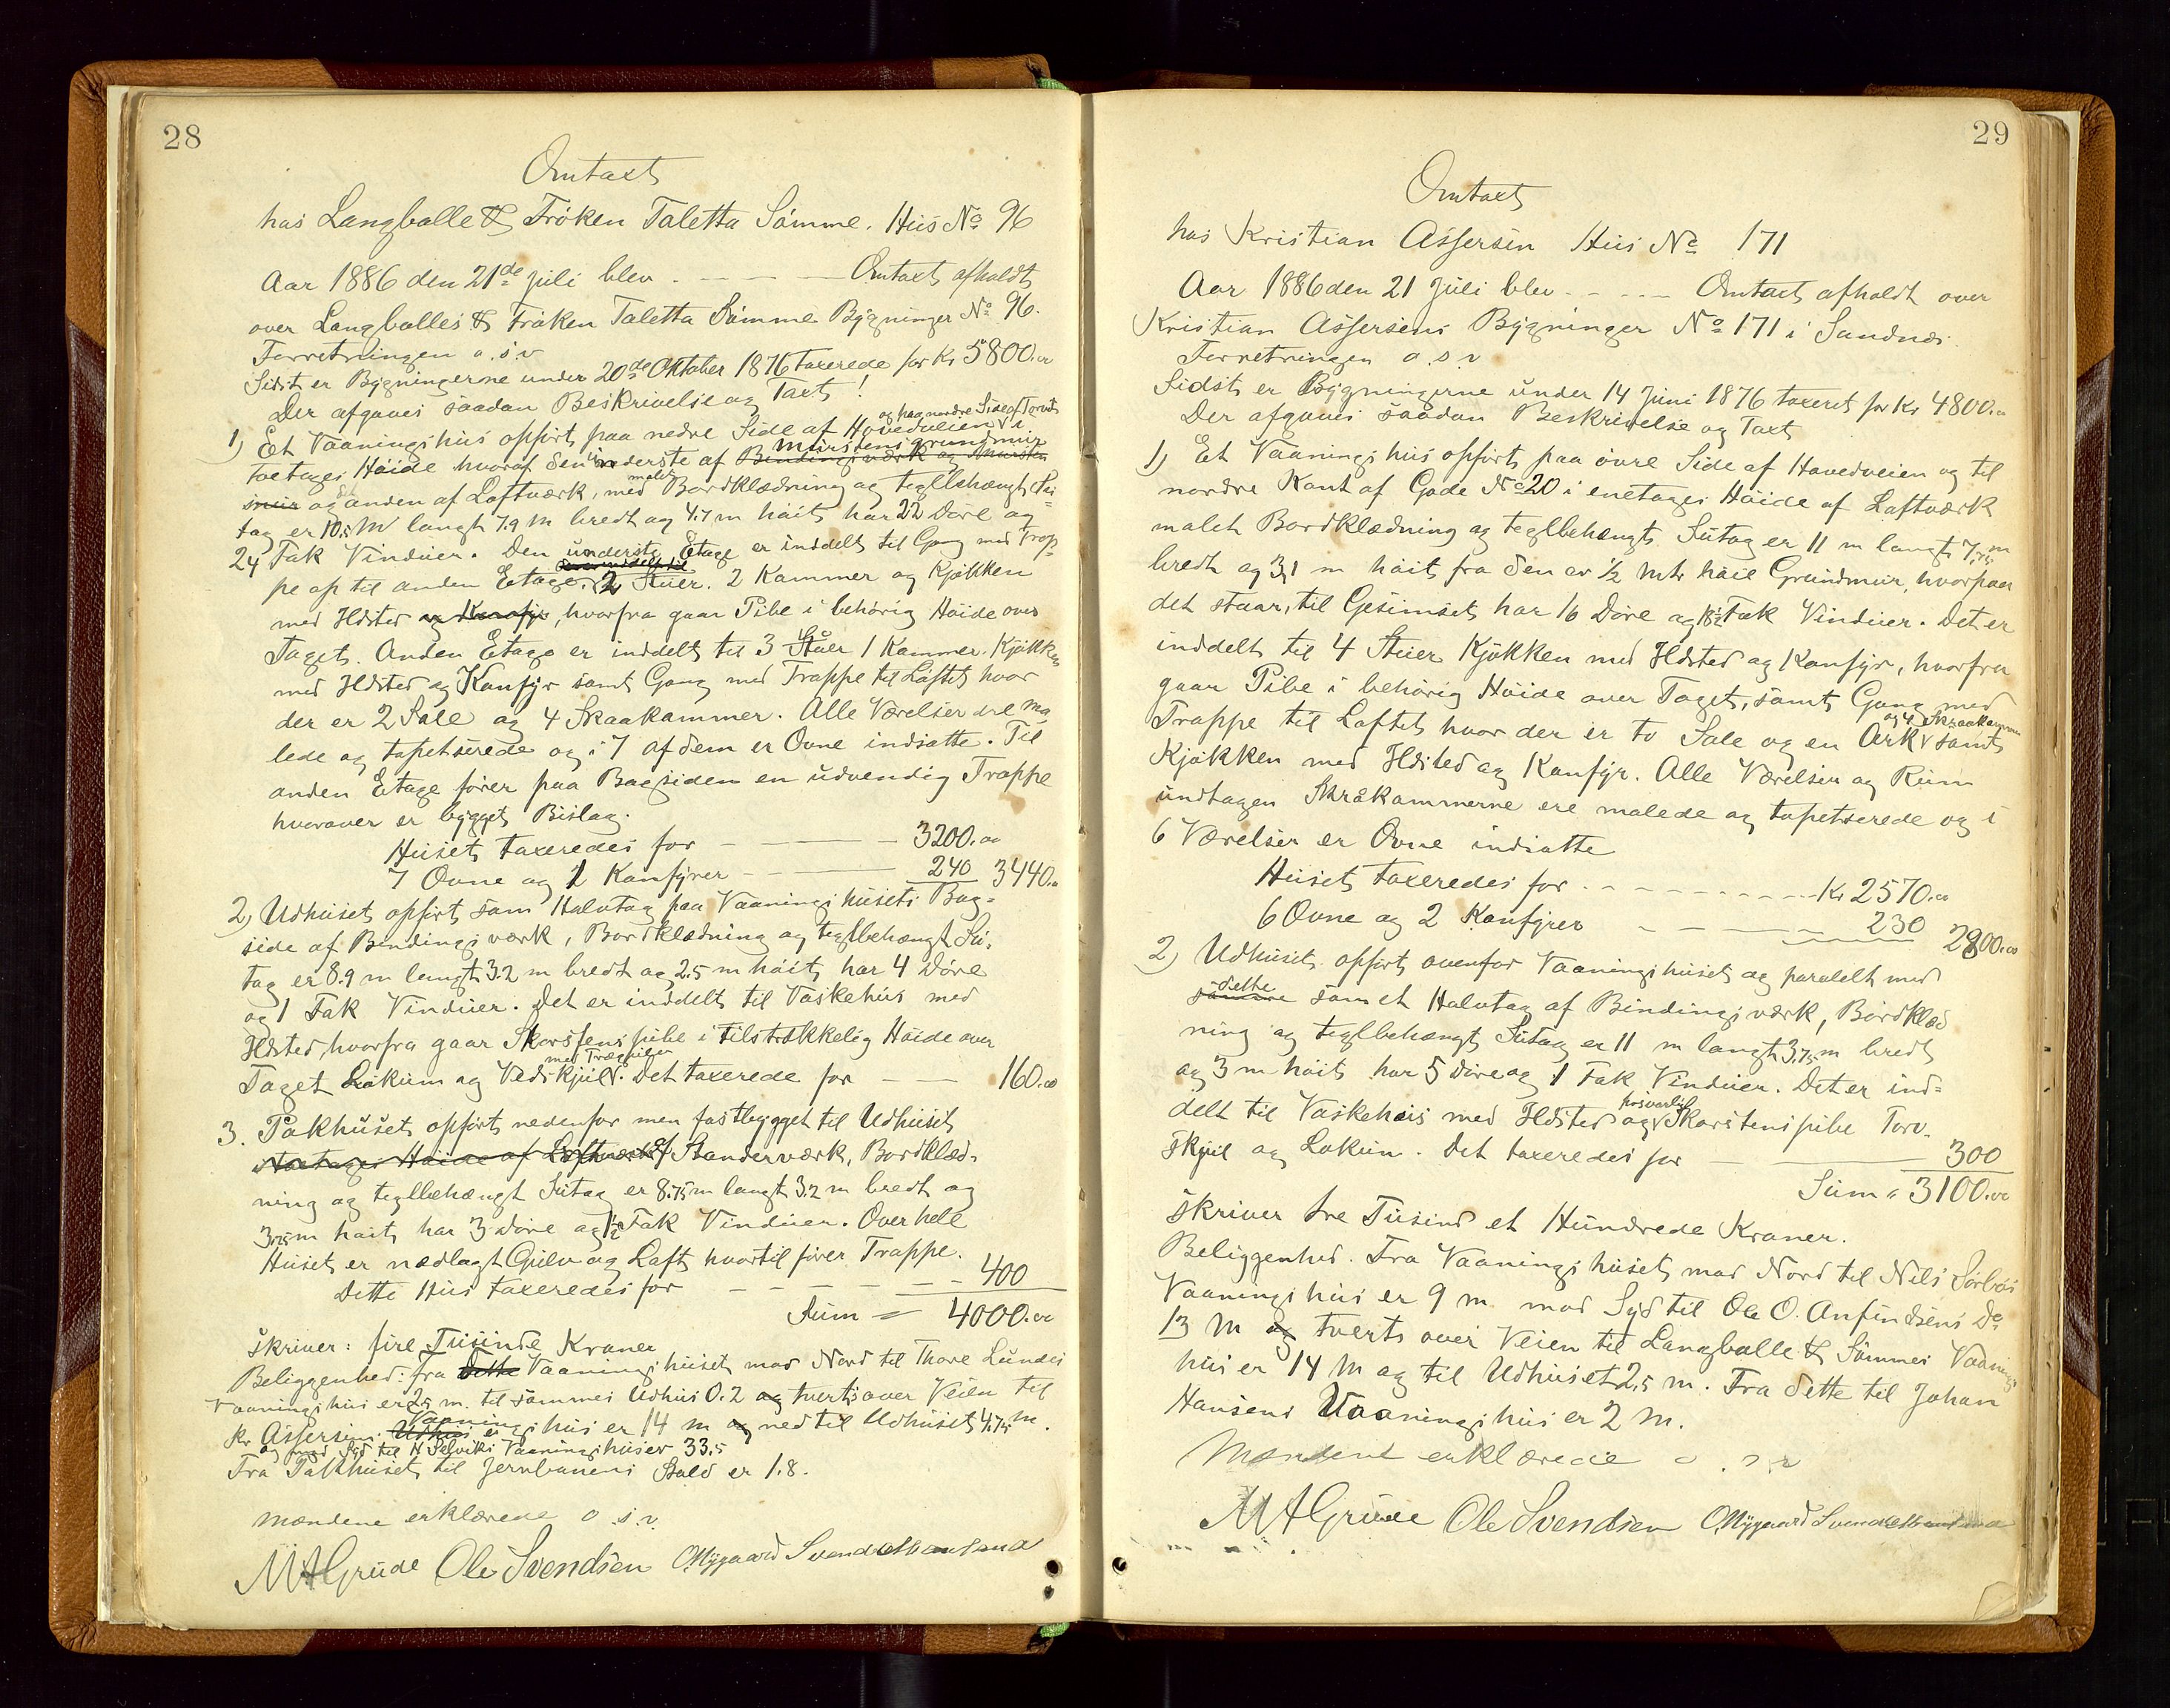 28
Omtaxt
hos Langballe & Fröken Taletta Sömme. Hus No 96
Aar 1886 den 21de Juli blev - - - - Omtaxt afholdt
over Langballes & Fröken Taletta Sömme Bygninger No 96.
Forretningen o.s.v
Sidst er Bygningerne under 20de Oktober 1876 taxerede for Kr 5800.00
Der afgaves saadan Beskrivelse og Taxt!
og paa nordre Side af Torvet
1) Et Vaaningshus opfört paa nedre Side af Hovedveien i
murstens grundmur
toetages Höide hvoraf den underste af Bindingsværk og Mursten
malet
mur og den anden af Loftværk, med Bordklædning og teglbehængt Su=
tag er 10.5 M langt 7.9 m bredt og 4.7 m höit, har 22 Döre og
24 Fak Vinduer. Den underste Etage er inddelt til Gang med Trap=
pe op til anden Etage, 2 Stuer. 2 Kammer og Kjökken
med Ildsted og Komfyr, hvorfra gaar Pibe i behörig Höide over
Taget. Anden Etage er inddelt til 3 Stuer 1 Kammer. Kjökken
med Ildsted og Komfyr samt Gang med Trappe til Loftet hvor
der er 2 Sale og 4 Skraakammer. Alle Værelser ere ma
lede og tapetserede og i 7 af dem er Ovne indsatte. Til
anden Etage förer paa Bagsiden en udvendig Trappe
hvorover er bygget Bislag.
Huset taxeredes for - - - 3200.00
7 Ovne og 1 Komfyrer - - 240 3440.00
2) Udhuset opfört som Halvtag paa Vaaningshusets Bag=
side af Bindingsværk, Bordklædning og teglbehængt Su=
tag er 8.9 m langt 3.2 m bredt og 2.5 m höit, har 4 Döre
og 1 Fak Vinduer. Det er inddelt til Vaskehus med
Ildsted, hvorfra gaar Skorstenspibe i tilstrækkelig Höide over
med Træpiller
Taget Lokum og Vedskjul. Det taxerede for - - 160.00
3. Pakhuset opfört nedenfor men fastbygget til Udhuset
i toetages Höide af Loftværk af Standerværk, Bordklæd=
ning og teglbehængt Sutag er 8.75 m langt 3.2 m bredt og
3.75 m höit, har 3 Döre og 1½ Fak Vinduer. Over hele
Huset er nedlagt Gulv og Loft hvortil förer Trappe.
Dette Hus taxeredes for - - - - 400
Sum = 4000.00
skriver: fire Tusinde Kroner
Beliggenhed: fra Dette Vaaningshuset mod Nord til Thore Lundes
Vaaningshus er 2.5 m. til sammes Udhus 0.2 og tverts over Veien til
Vaaning
Kr Assersens Udhus shus er 14 m og ned til Udhuset 4.75 m.
og mod Syd til N Selviks Vaaningshus er 33.5
Fra Pakhuset til Jernbanens Stald er 1.8.
Mændene erklærede o.s.v.
MAGrude Ole Svendsen O. Nygaard Svend

29
Omtaxt
hos Kristian Assersen Hus No 171
Aar 1886 den 21 Juli blev - - - - Omtaxt afholdt over
Kristian Assersens Bygninger No 171 i Sandnæs
Forretningen o.s.v
Sidst er Bygningerne under 14 Juni 1876 taxeret for Kr 4800.00
Der afgaves saadan Beskrivelse og Taxt
1) Et Vaaningshus opfört paa övre Side af Hovedveien og til
nordre Kant af Gade No 20 i enetages Höide af Loftværk
malet Bordklædning og teglbehængt Sutag er 11 m langt 7.75 m
bredt og 3,1 m höit fra den er ½ Mtr höie Grundmur, hvorpaa
det staar, til Gesimset har 16 Döre og 18½ Fak Vinduer. Det er
inddelt til 4 Stuer Kjökken med Ildsted og Komfyr, hvorfra
gaar Pibe i behörig Höide over Taget, samt Gang med
og 4 Skraakammer
Trappe til Loftet hvor der er to Sale og en Ark samt
Kjökken med Ildsted og Komfyr. Alle Værelser og Rum
undtagen Skråkammerne ere malede og tapetserede og i
6 Værelser er Ovne indsatte
Huset taxeredes for - - - - - Kr 2570.00
6 Ovne og 2 Komfyrer - - - - 230 2800.00
2) Udhuset opfört ovenfor Vaaningshuset og paralelt med
dette
samme som et Halvtag af Bindingsværk, Bordklæd
ning og teglbehængt Sutag er 11 m langt 3.75 m bredt
og 3 m höit har 5 Döre og 1 Fak Vinduer. Det er ind=
forsvarlig
delt til Vaskehus med Ildsted og Skorstenspibe Torv=
skjul og Lokum. Det taxeredes for - - 300
Sum " 3100.00
skriver tre Tusind et Hundrede Kroner.
Beliggenhed. Fra Vaaningshuset mod Nord til Nils Sörbös
Vaaningshus er 9 m mod Syd til Ole O. Anfindsens Do
13 M og tverts over Veien til Langballe & Sömmes Vaanings
hus er 14 M og til Udhuset 2,5 m. Fra dette til Johan
Hansens Vaaningshus er 2 M.
Mændene erklærede o.s.v
MAGrude Ole Svendsen O. Nygaard Svend